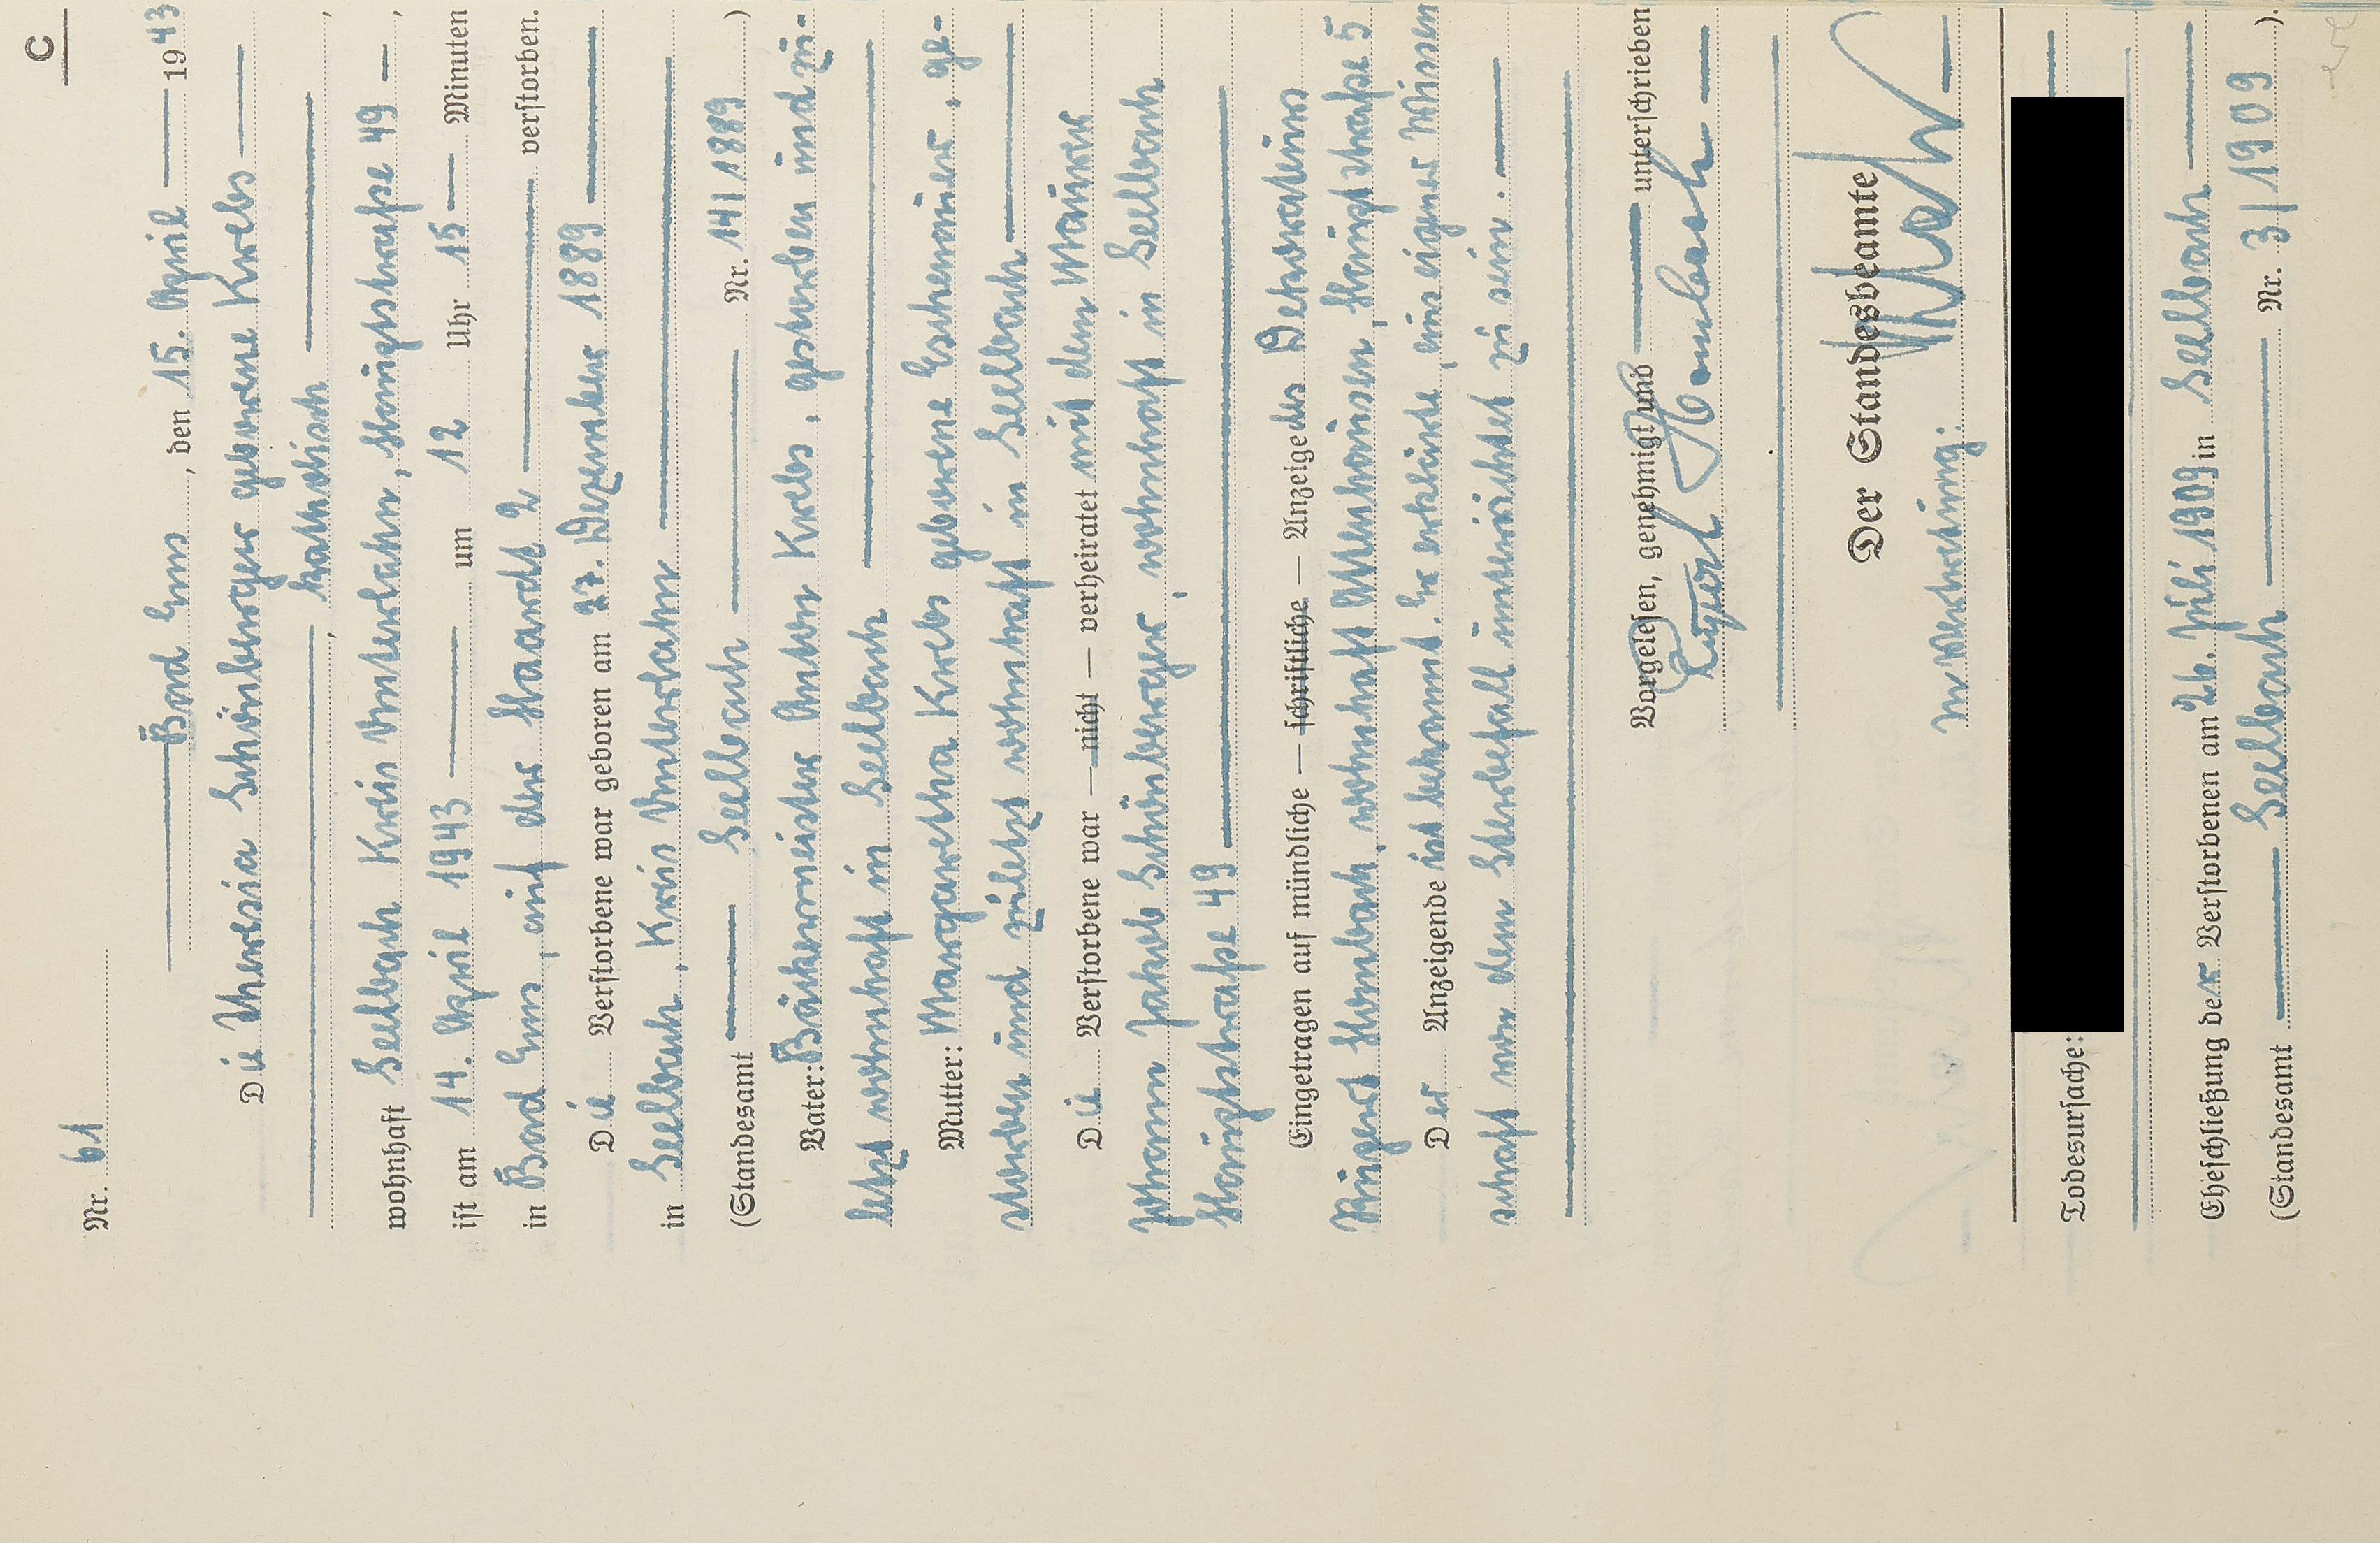 C
Nr. 61
Bad Ems, den 15. April 1943
Die Theresia Schönberger geborene Krebs
katholisch,
wohnhaft Seelbach Kreis Unterlahn, Hauptstraße 49,
ist am 14. April 1943 um 12 Uhr 15 Minuten
in Bad Ems, auf der Haardt 2 verstorben.
Die Verstorbene war geboren am 27. Dezember 1889
in Seelbach, Kreis Unterlahn
(Standesamt Seelbach Nr. 14/1889)
Vater: Bäckermeister Anton Krebs, gestorben und zu-
letzt wohnhaft in Seelbach
Mutter: Margaretha Krebs geborene Eschenauer, ge-
storben und zuletzt wohnhaft in Seelbach
Die Verstorbene war — nicht — verheiratet mit dem Maurer
Johann Jakob Schönberger, wohnhaft in Seelbach
Hauptstraße 49
Eingetragen auf mündliche — schriftliche — Anzeige des Dekorateurs
Rupert Hombach, wohnhaft Attenhausen, Hauptstraße 5
Der Anzeigende ist bekannt. Er erklärte, aus eigner Wissen
schaft von dem Sterbefall unterrichtet zu sein.
Vorgelesen, genehmigt und unterschrieben
Rupert Hombach
Der Standesbeamte
In Vertretung:
Todesursache:
Eheschließung der Verstorbenen am 26. Juli 1909 in Seelbach
(Standesamt Seelbach Nr. 3/1909).